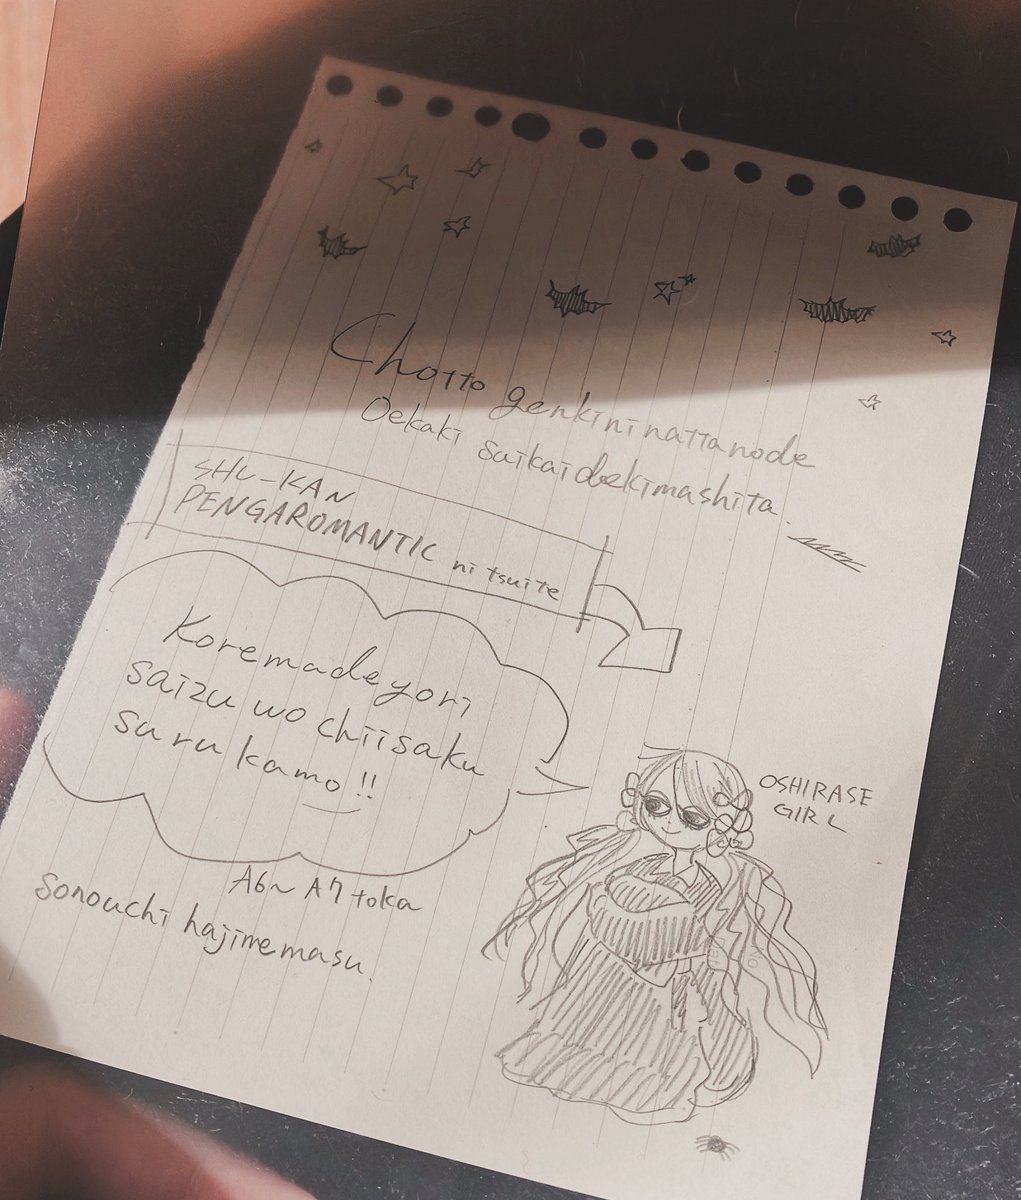 Chotto genki ni natta node
Oekaki saikai dekimashita.
SHU-KAN
PENGAROMANTIC ni tsuite
Koremadeyori
saizu wo chiisaku
suru kamo!!
OSHIRASE
GIRL
A6~A7 toka
Sonouchi hajimemasu.